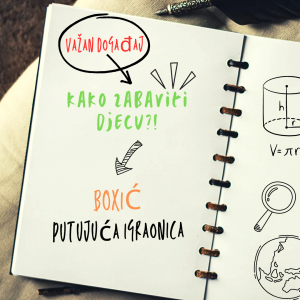 VAŽAN DOGAĐAJ
KAKO ZABAVITI
DJECU?!
BOXIĆ
PUTUJUĆA IGRAONICA
h
r
V=πr